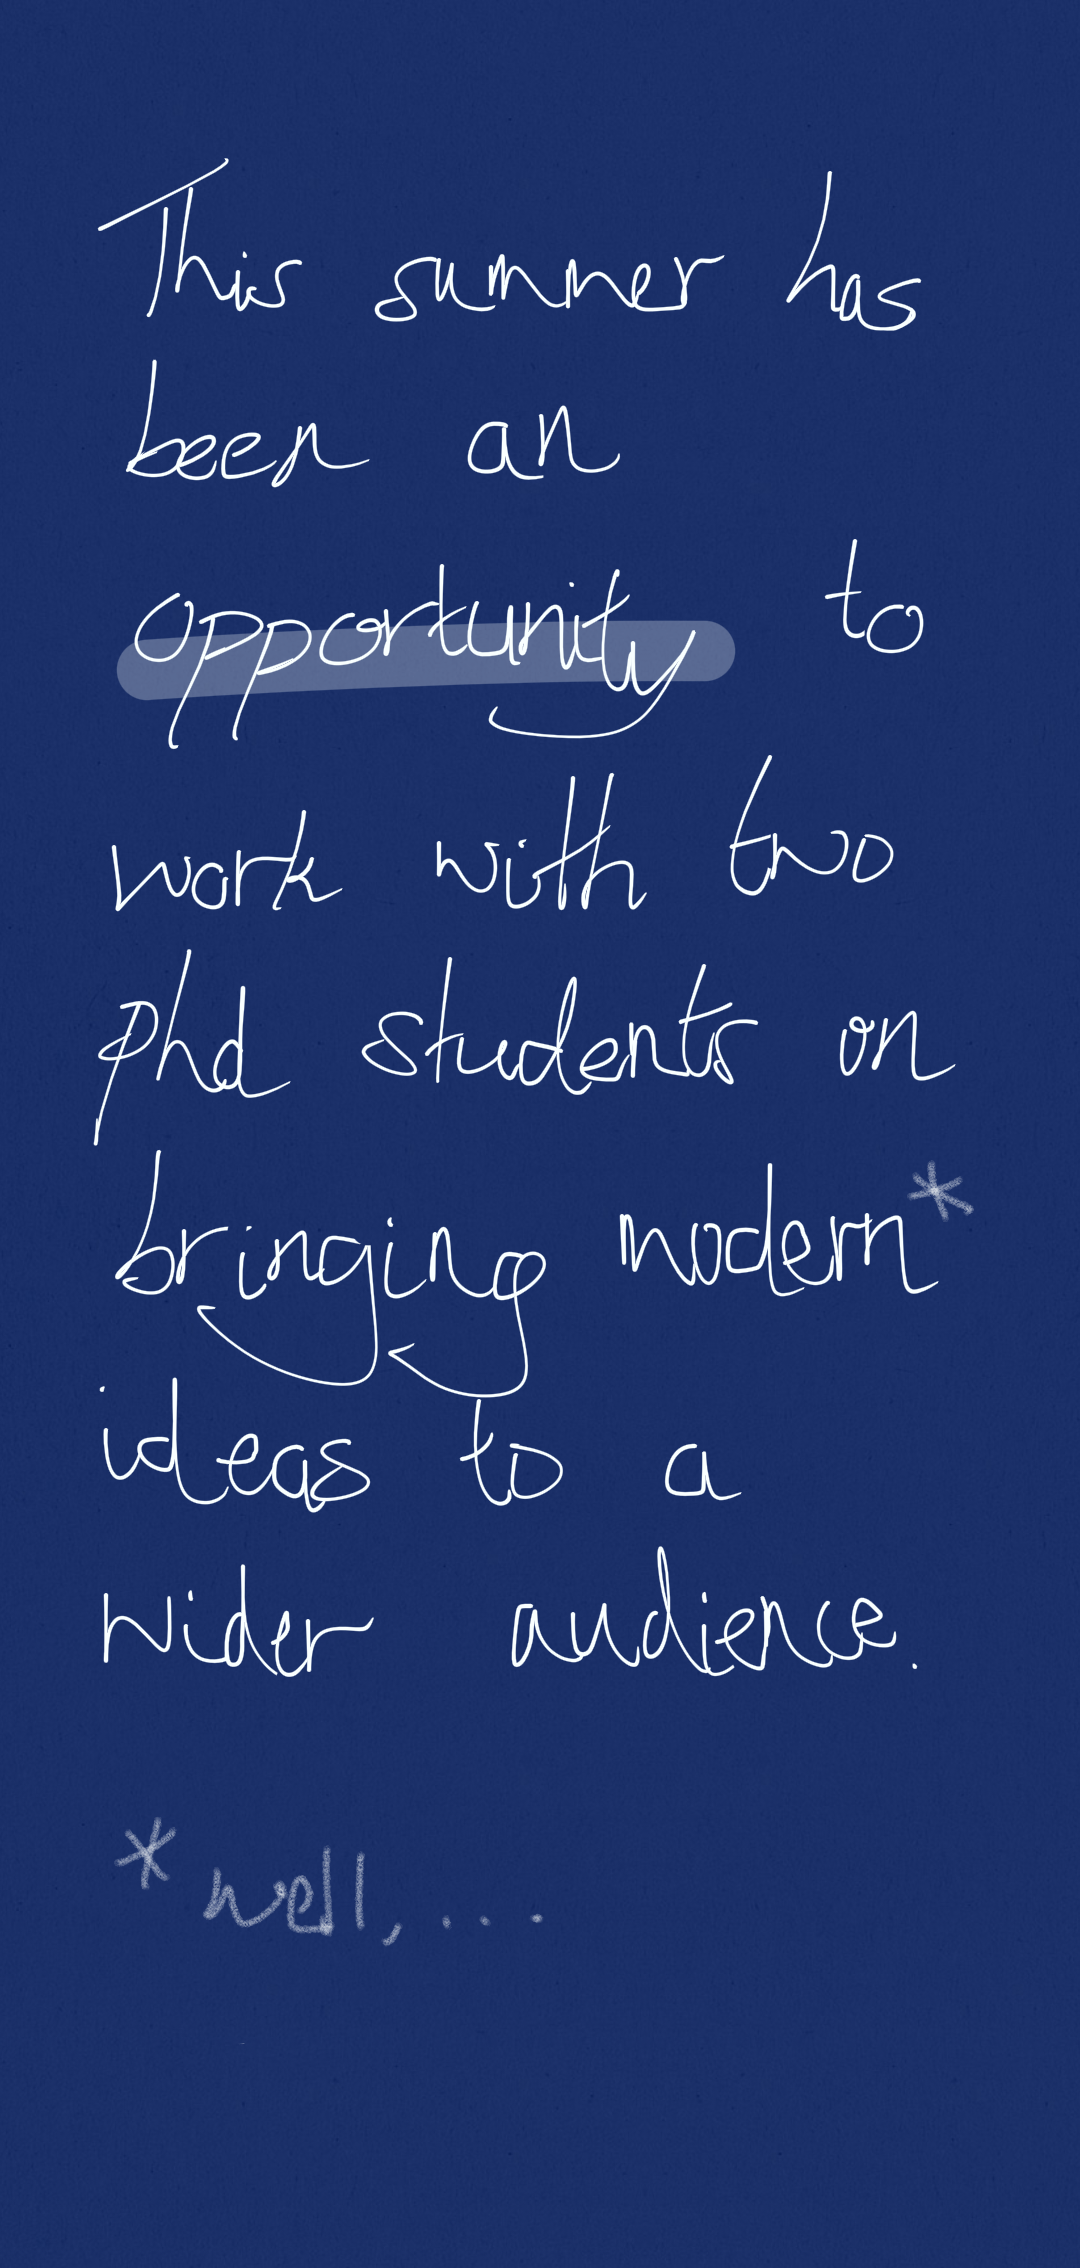 This summer has
been an
opportunity to
work with two
phd students on
bringing modern*
ideas to a
wider audience.
* well, ...